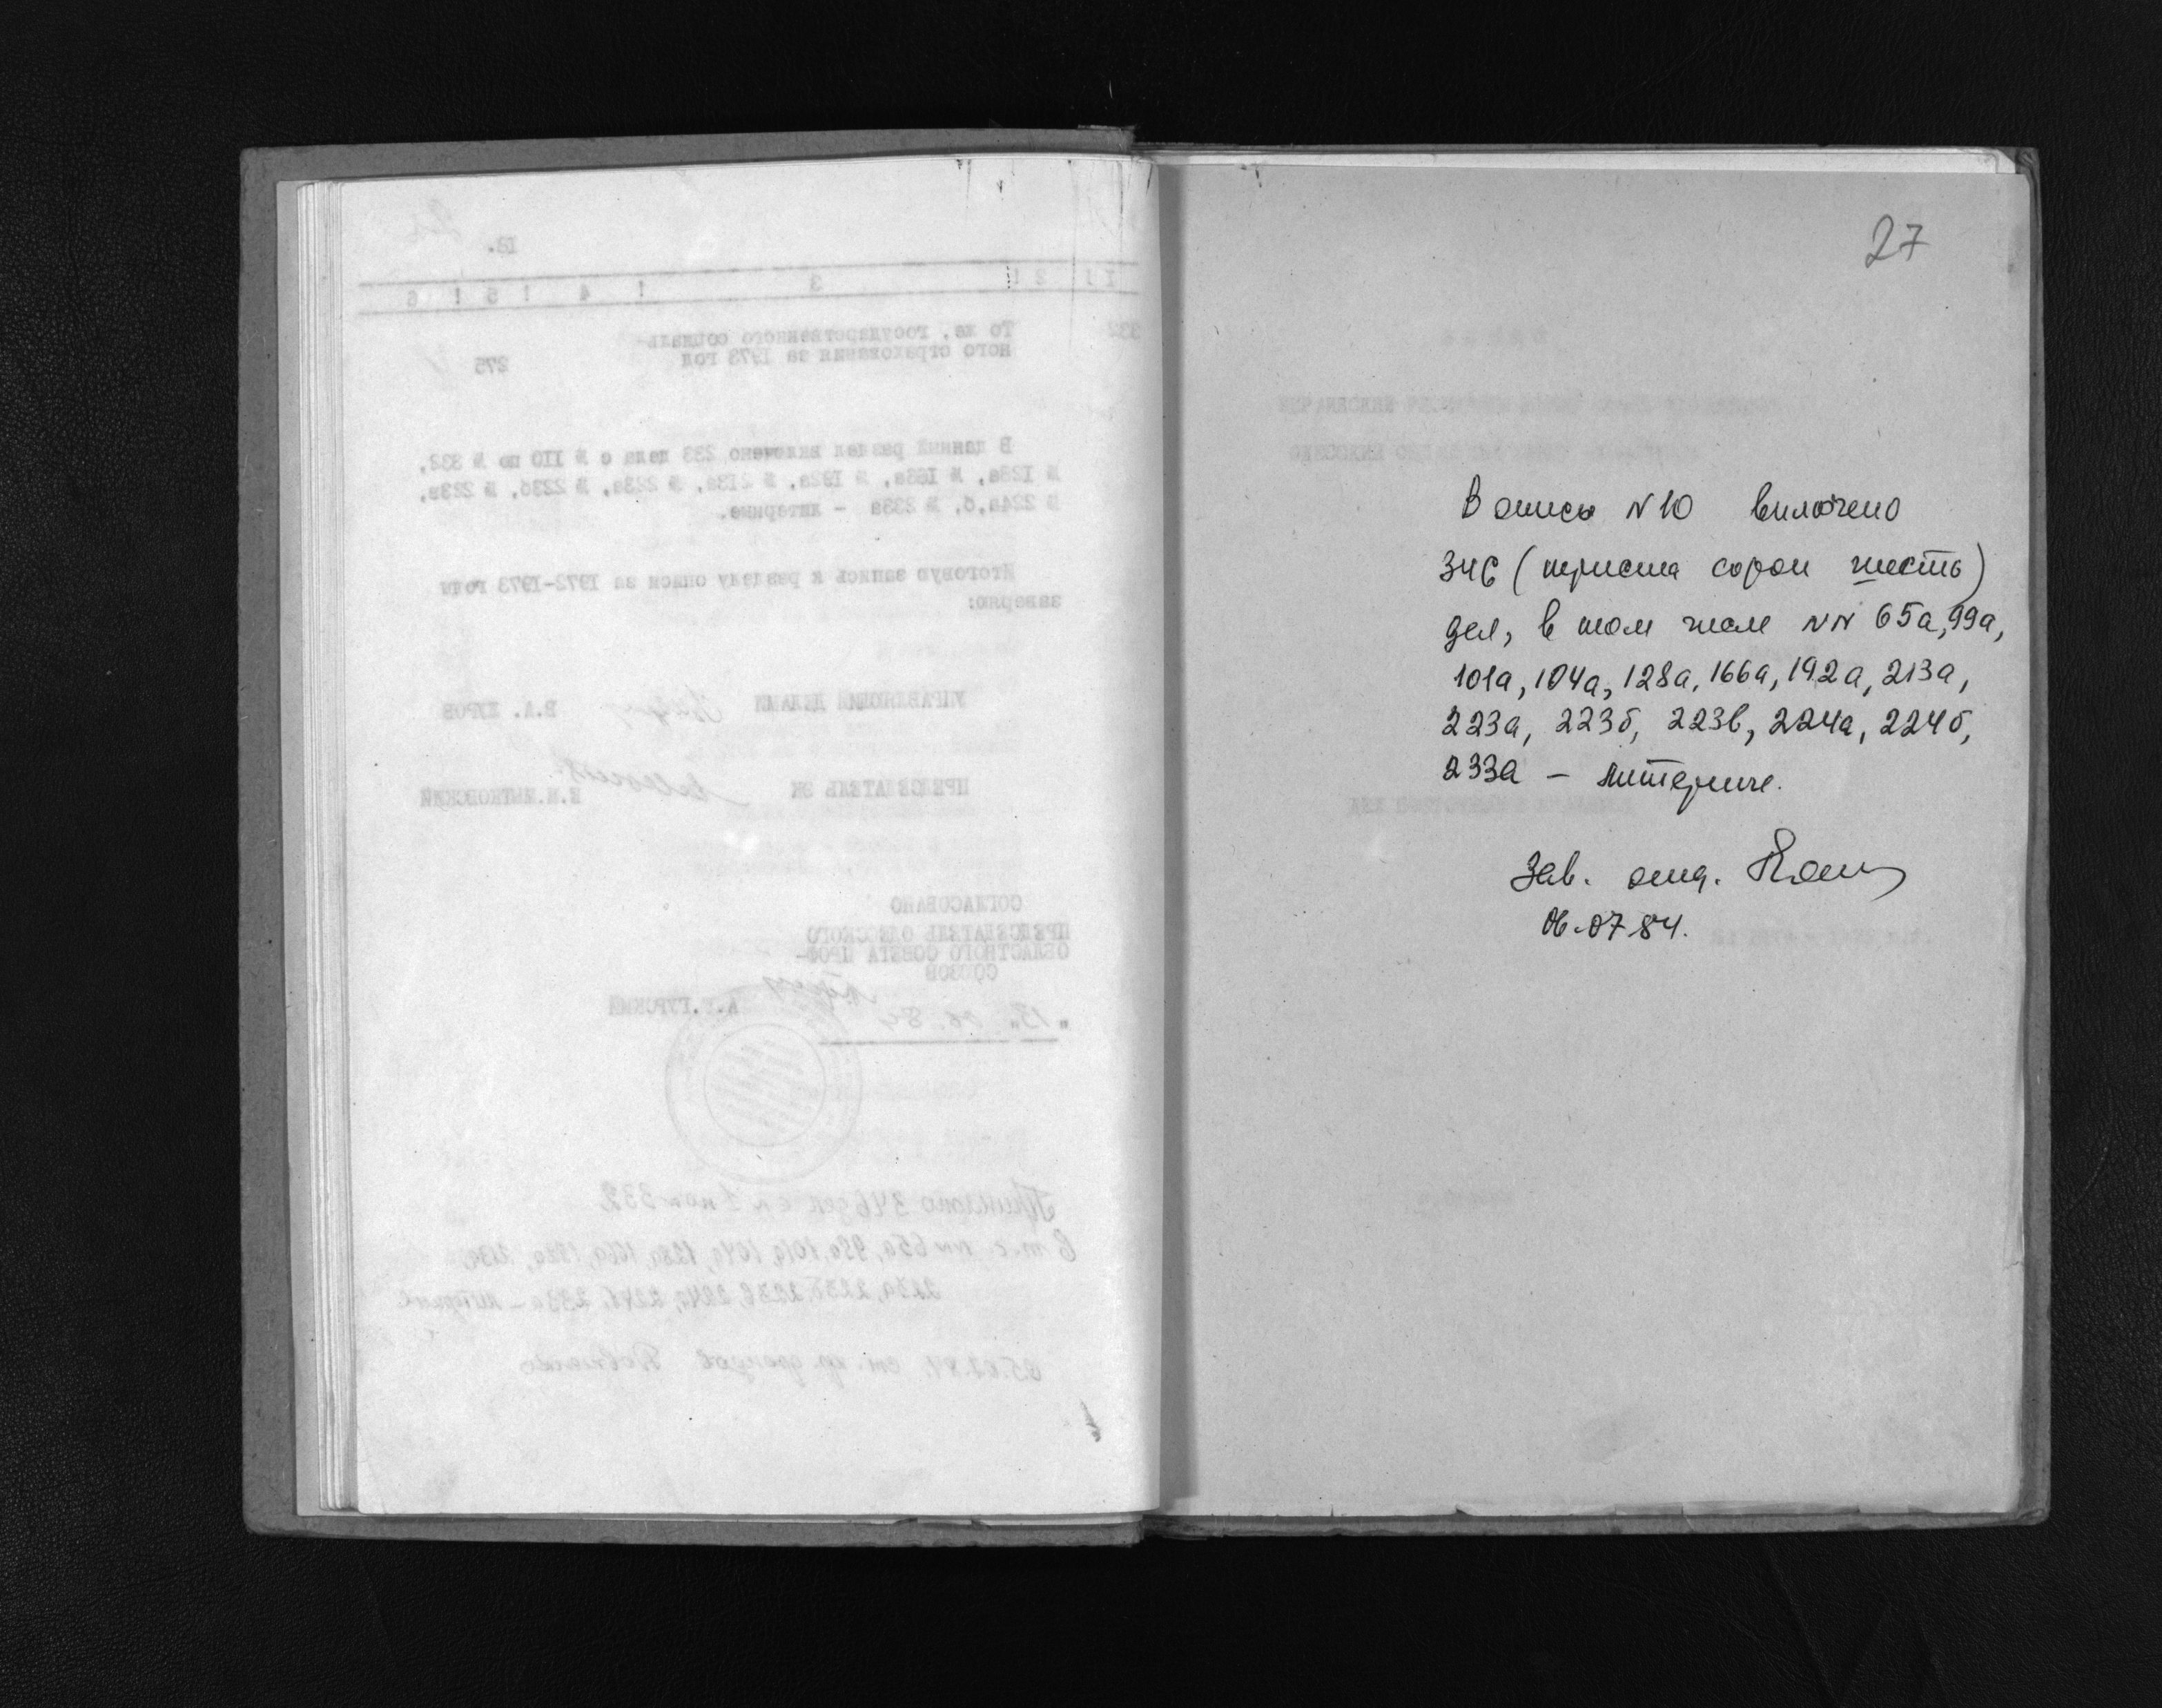 27
В опись N 10 включено
346 (триста сорок шесть)
дел, в том числе NN 65а, 99а,
101а, 104а, 128а, 166а, 192а, 213а,
223а, 223б, 223в, 224а, 224б,
233а – литерные.
Зав. отд.
06.07.84.
18.
1 ! 2 ! 3 ! 4 ! 5 ! 6
332 То же, государственного социаль-
ного страхования за 1973 год 275
В данный раздел включено 233 дела с № 110 по № 332,
№ 128а, № 166а, № 192а, № 213а, № 223а, № 223б, № 223в,
№ 224а,б, № 233а – литерные.
Итоговую запись к разделу описи за 1972-1973 годы
заверяю:
УПРАВЛЯЮЩИЙ ДЕЛАМИ В.А.
ПРЕДСЕДАТЕЛЬ ЭК
СОГЛАСОВАНО
ПРЕДСЕДАТЕЛЬ ОДЕССКОГО
ОБЛАСТНОГО СОВЕТА ПРОФ-
СОЮЗОВ
Принято 346 дел с N 1 по N 332
в т.с. NN 65а, 101а, 104а, 128а, 166а, 192а, 213а,
223а, 223б, 223в, 224а, 224б, 233а –